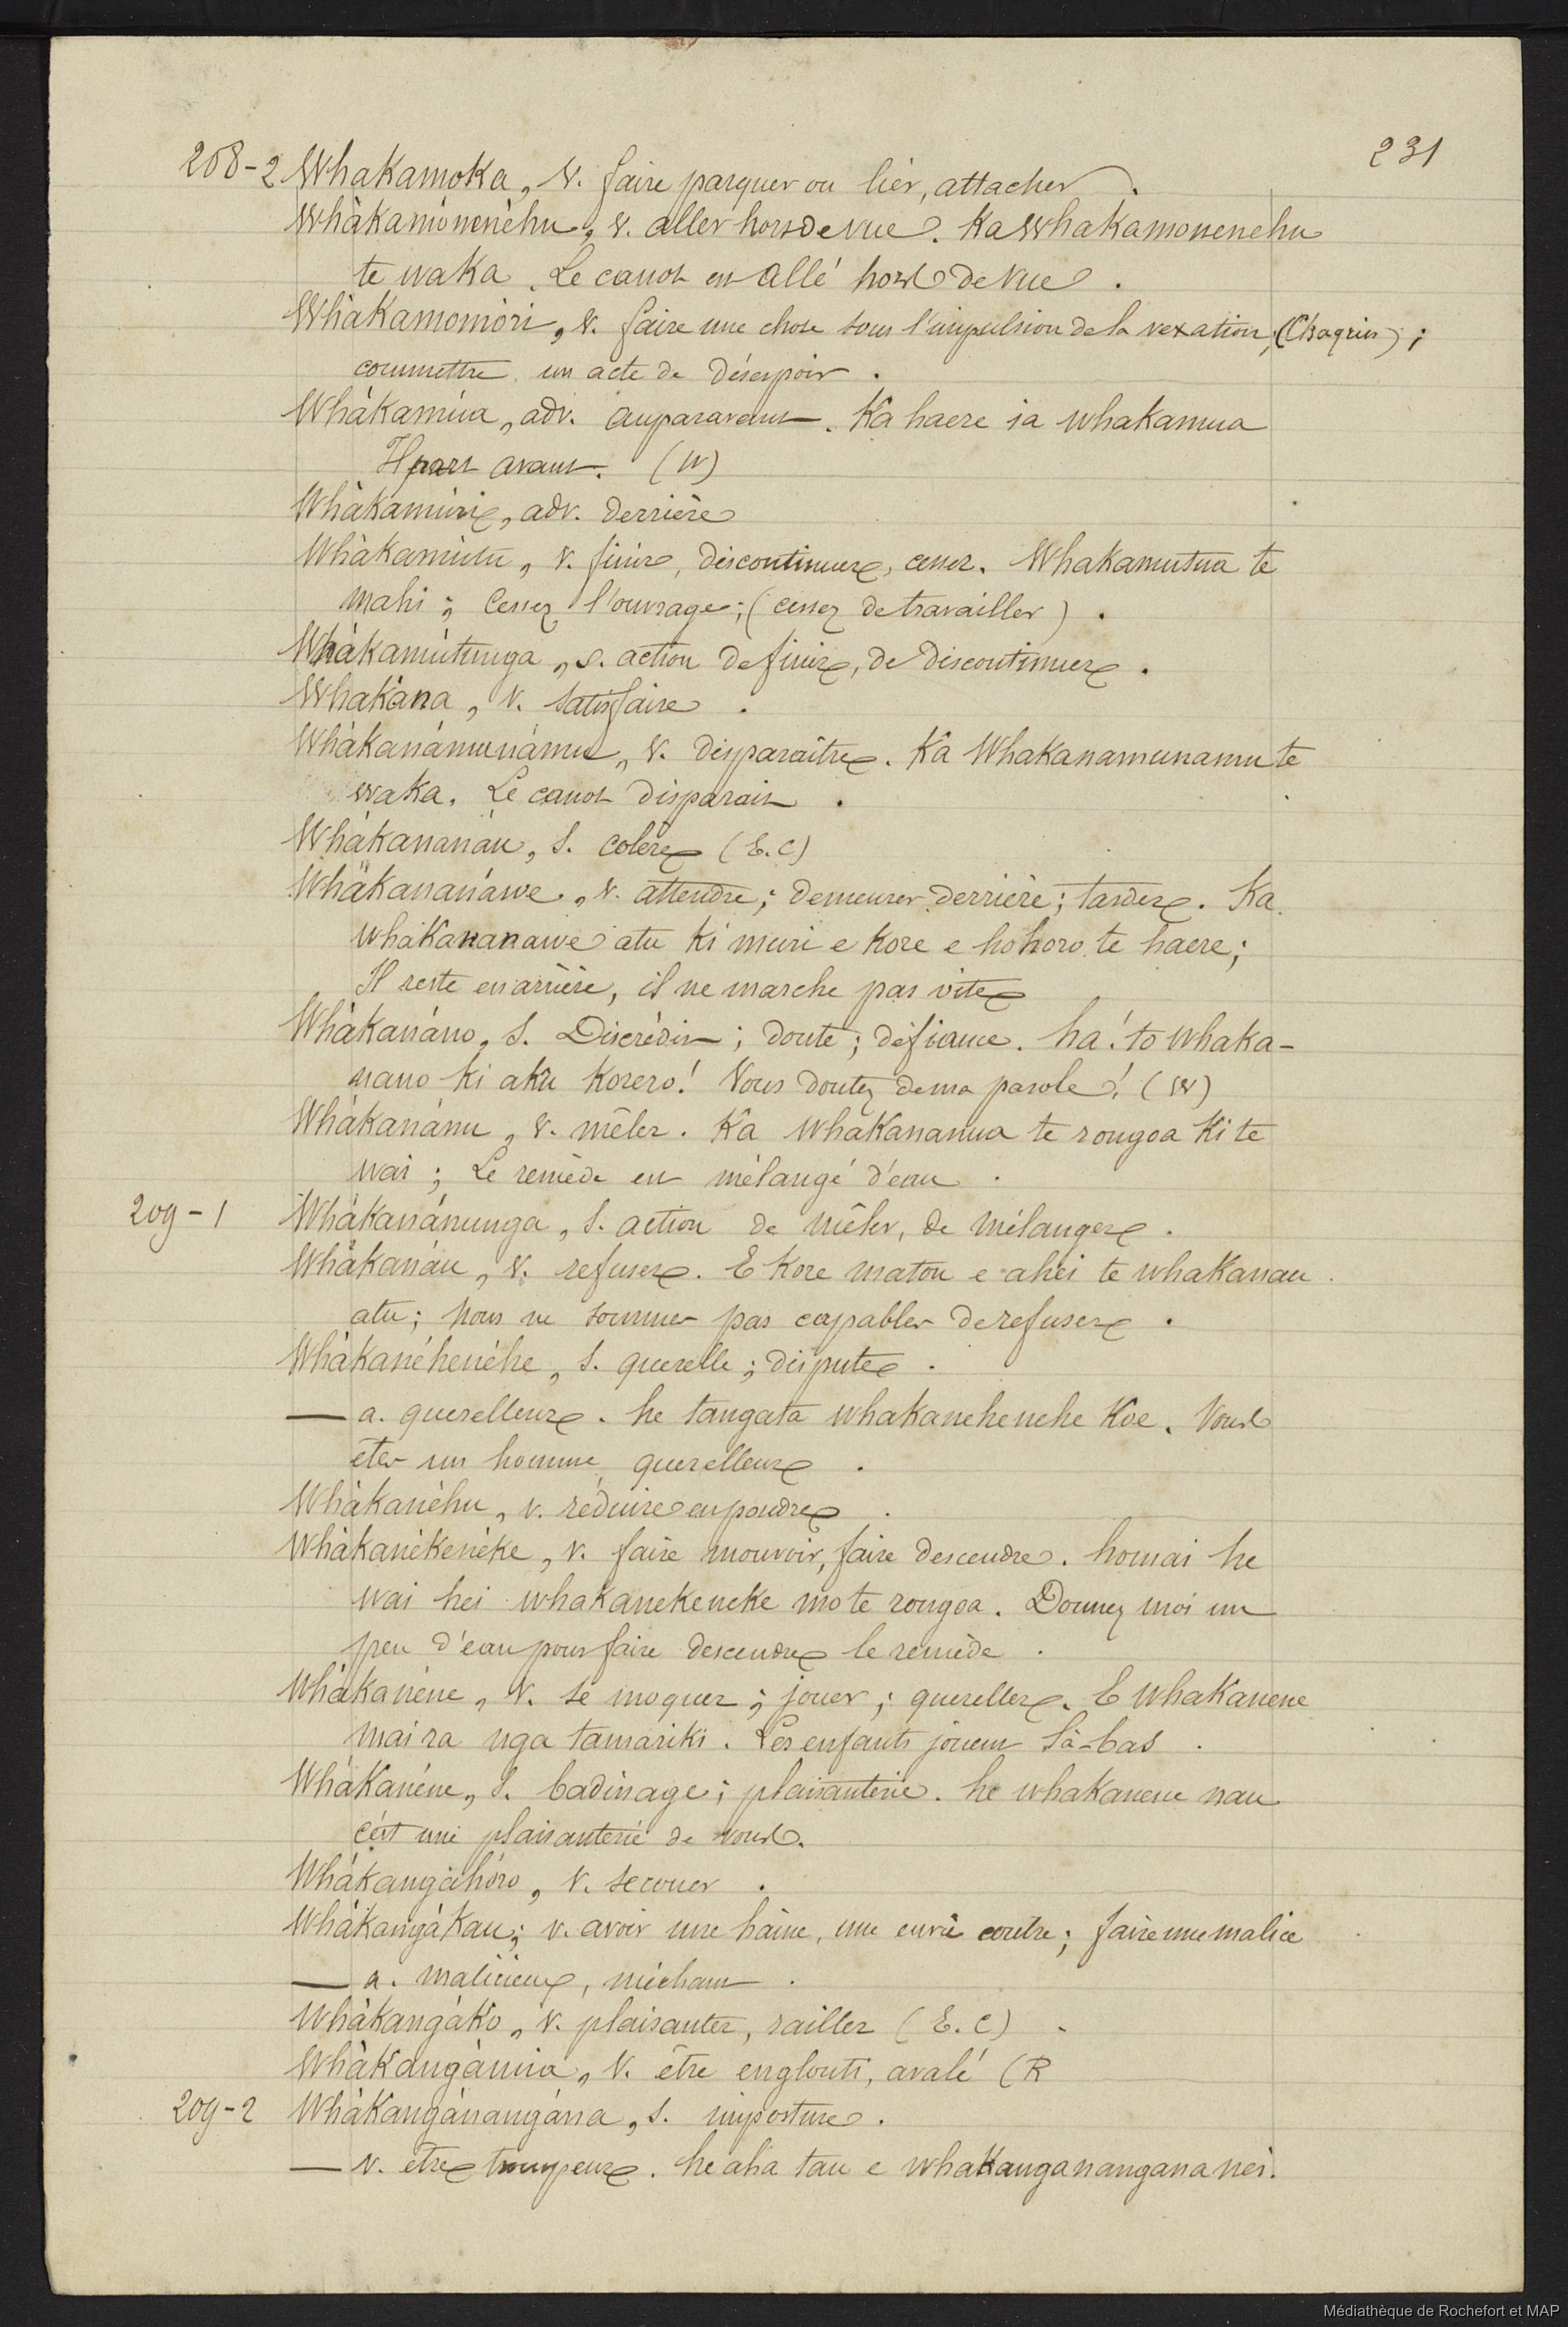 231
208-2 Whakamoka, v. faire parquer ou lier, attacher.
Whàkamónenéhu, v. aller hors de vue. Ka whakamonenehu
te waka. Le canot est allé hors de vue.
Whàkamomóri, v. faire une chose sous l'impulsion de la vexation, (Chagrin);
commettre un acte de désespoir.
Whàkamúa, adv. auparavant. Ka haere ia whakamua
Il part avant. (W)
Whàkamúri, adv. derrière
Whàkamútu, v. finir, discontinuer, cesser. Whakamutua te
mahi; Cessez l'ouvrage; (cessez de travailler).
Whàkamútunga, s. action de finir, de discontinuer.
Whakána, v. satisfaire.
Whàkanámunámu, v. disparaître. Ka Whakanamunamu te
waka. Le canot disparait.
Whàkananáu, s. colère (E.C)
Whàkananáwe, v. attendre; demeurer derrière; tarder. Ka
whakananawe atu ki muri e kore e hohoro te haere;
Il reste en arrière, il ne marche pas vite
Whàkanáno, s. Discrédit; doute; défiance. ha! to whaka-
nano ki aku korero! Vous doutez de ma parole! (W)
Whàkanánu, v. mêler. Ka whakananua te rongoa ki te
wai; Le remède est mélangé d'eau.
209-1 Whàkanánunga, s. action de mêler, de mélanger.
Whàkanáu, v. refuser. E Kore matou e ahei te whakanau
atu; nous ne sommes pas capables de refuser.
Whàkanéhenéhe, s. querelle; dispute.
— a. querelleur. he tangata whakanehenehe Koe. Vous
êtes un homme querelleur.
Whàkanéhu, v. réduire en poudre.
Whàkanékenéke, v. faire mouvoir, faire descendre. homai he
wai hei whakanekeneke mo te rongoa. Donnez moi un
peu d'eau pour faire descendre le remède.
Whàkanéne, v. se moquer; jouer; quereller. E whakanene
mai ra nga tamariki. Les enfants jouent là-bas.
Whàkanéne, s. badinage; plaisanterie. he whakanene nau
c'est une plaisanterie de vous.
Whàkangahóro, v. secouer.
Whàkangákau; v. avoir une haine, une envie contre; faire une malice
— a. malicieux, méchant.
Whàkangáko, v. plaisanter, railler (E.C).
Whàkangámia, v. être englouti, avalé (R
209-2 Whàkangánangána, s. imposture.
— v. être trompeur. he aha tau e whakanganangana nei.
Médiathèque de Rochefort et MAP